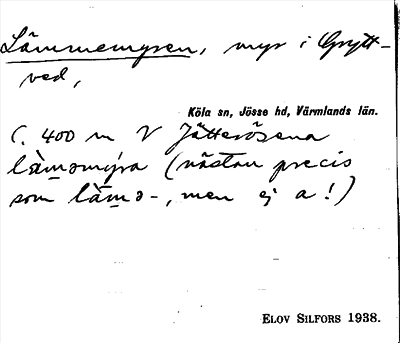 Lämmemyren, myr i Grytt-
ved,
Köla sn, Jösse hd, Värmlands län.
C. 400 m V Jätterösena
làm̲əmýra (nästan precis
som làm̲ə-, men ej a!)
ELOV SILFORS 1938.